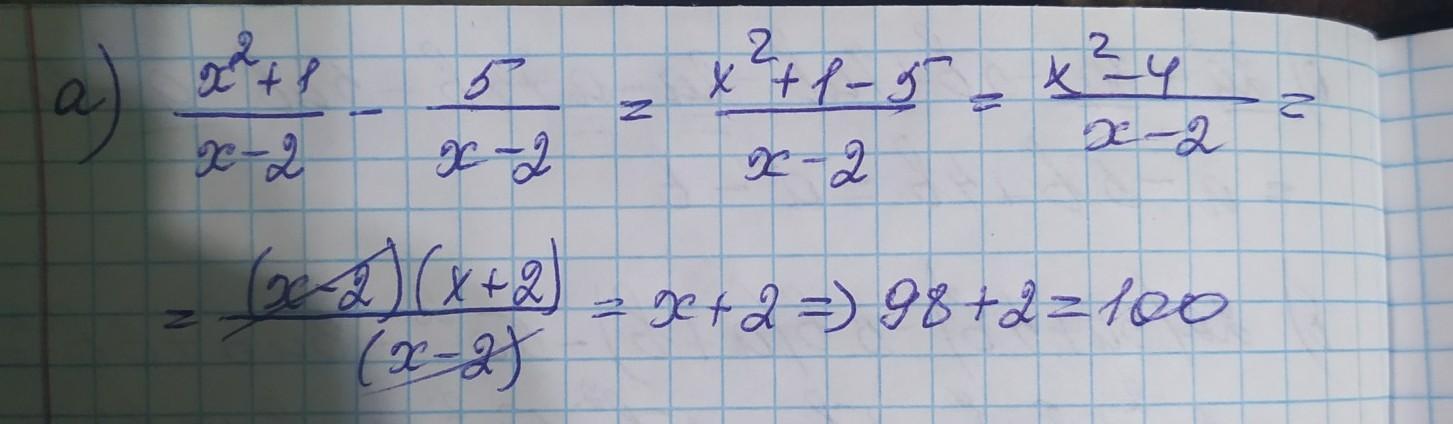 а) (x²+1)/(x-2) - 5/(x-2) = (x²+1-5)/(x-2) = (x²-4)/(x-2) =
= ((x-2)(x+2))/(x-2) = x+2 ⇒ 98+2=100